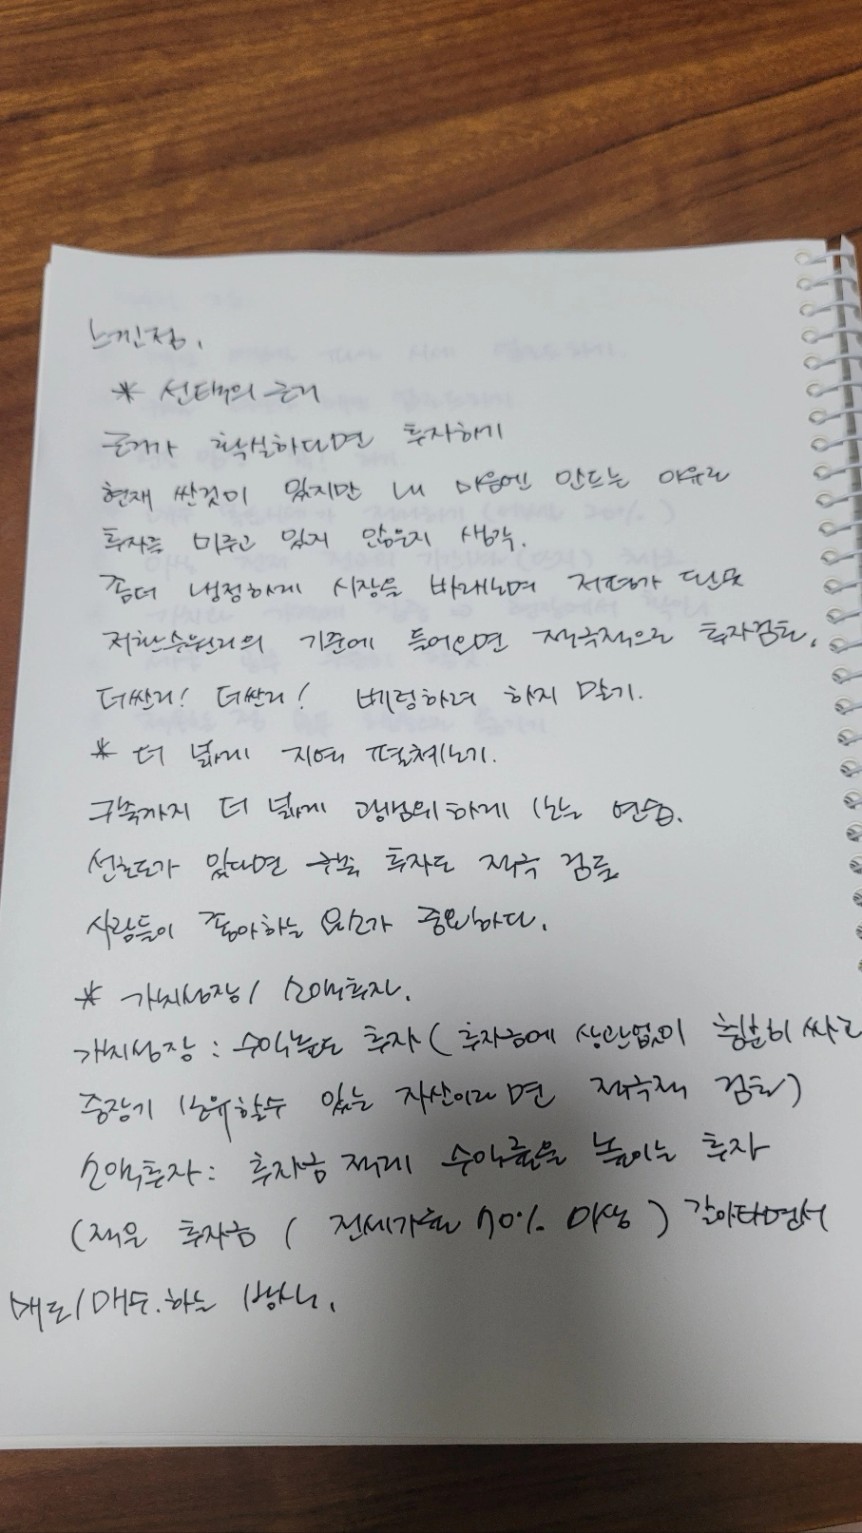 느낀점.
* 선택의 근거
근거가 확실하다면 투자하기
현재 싼것이 있지만 내 마음에 안드는 이유로
투자를 미루고 있지 않은지 생각.
좀더 냉정하게 시장을 바래보며 저평가 단지
저환수원리의 기준에 들어오면 적극적으로 투자검토.
더싼거! 더싼거! 베링하려 하지 말기.
* 더 넓게 지역 펼쳐보기.
구축까지 더 넓게 광범위하게 보는 연습.
선호도가 있다면 구축 투자도 적극 검토
사람들이 좋아하는 요소가 중요하다.
* 가치성장/소액투자.
가치성장: 수익높도 투자(투자금에 상관없이 충분히 싸고
중장기 보유할수 있는 자산이라면 적극적 검토)
소액투자: 투자금 적게 수익률을 높이는 투자
(적은 투자금(전세가율 70% 이상) 갈아타면서
매도/매수.하는 방식.